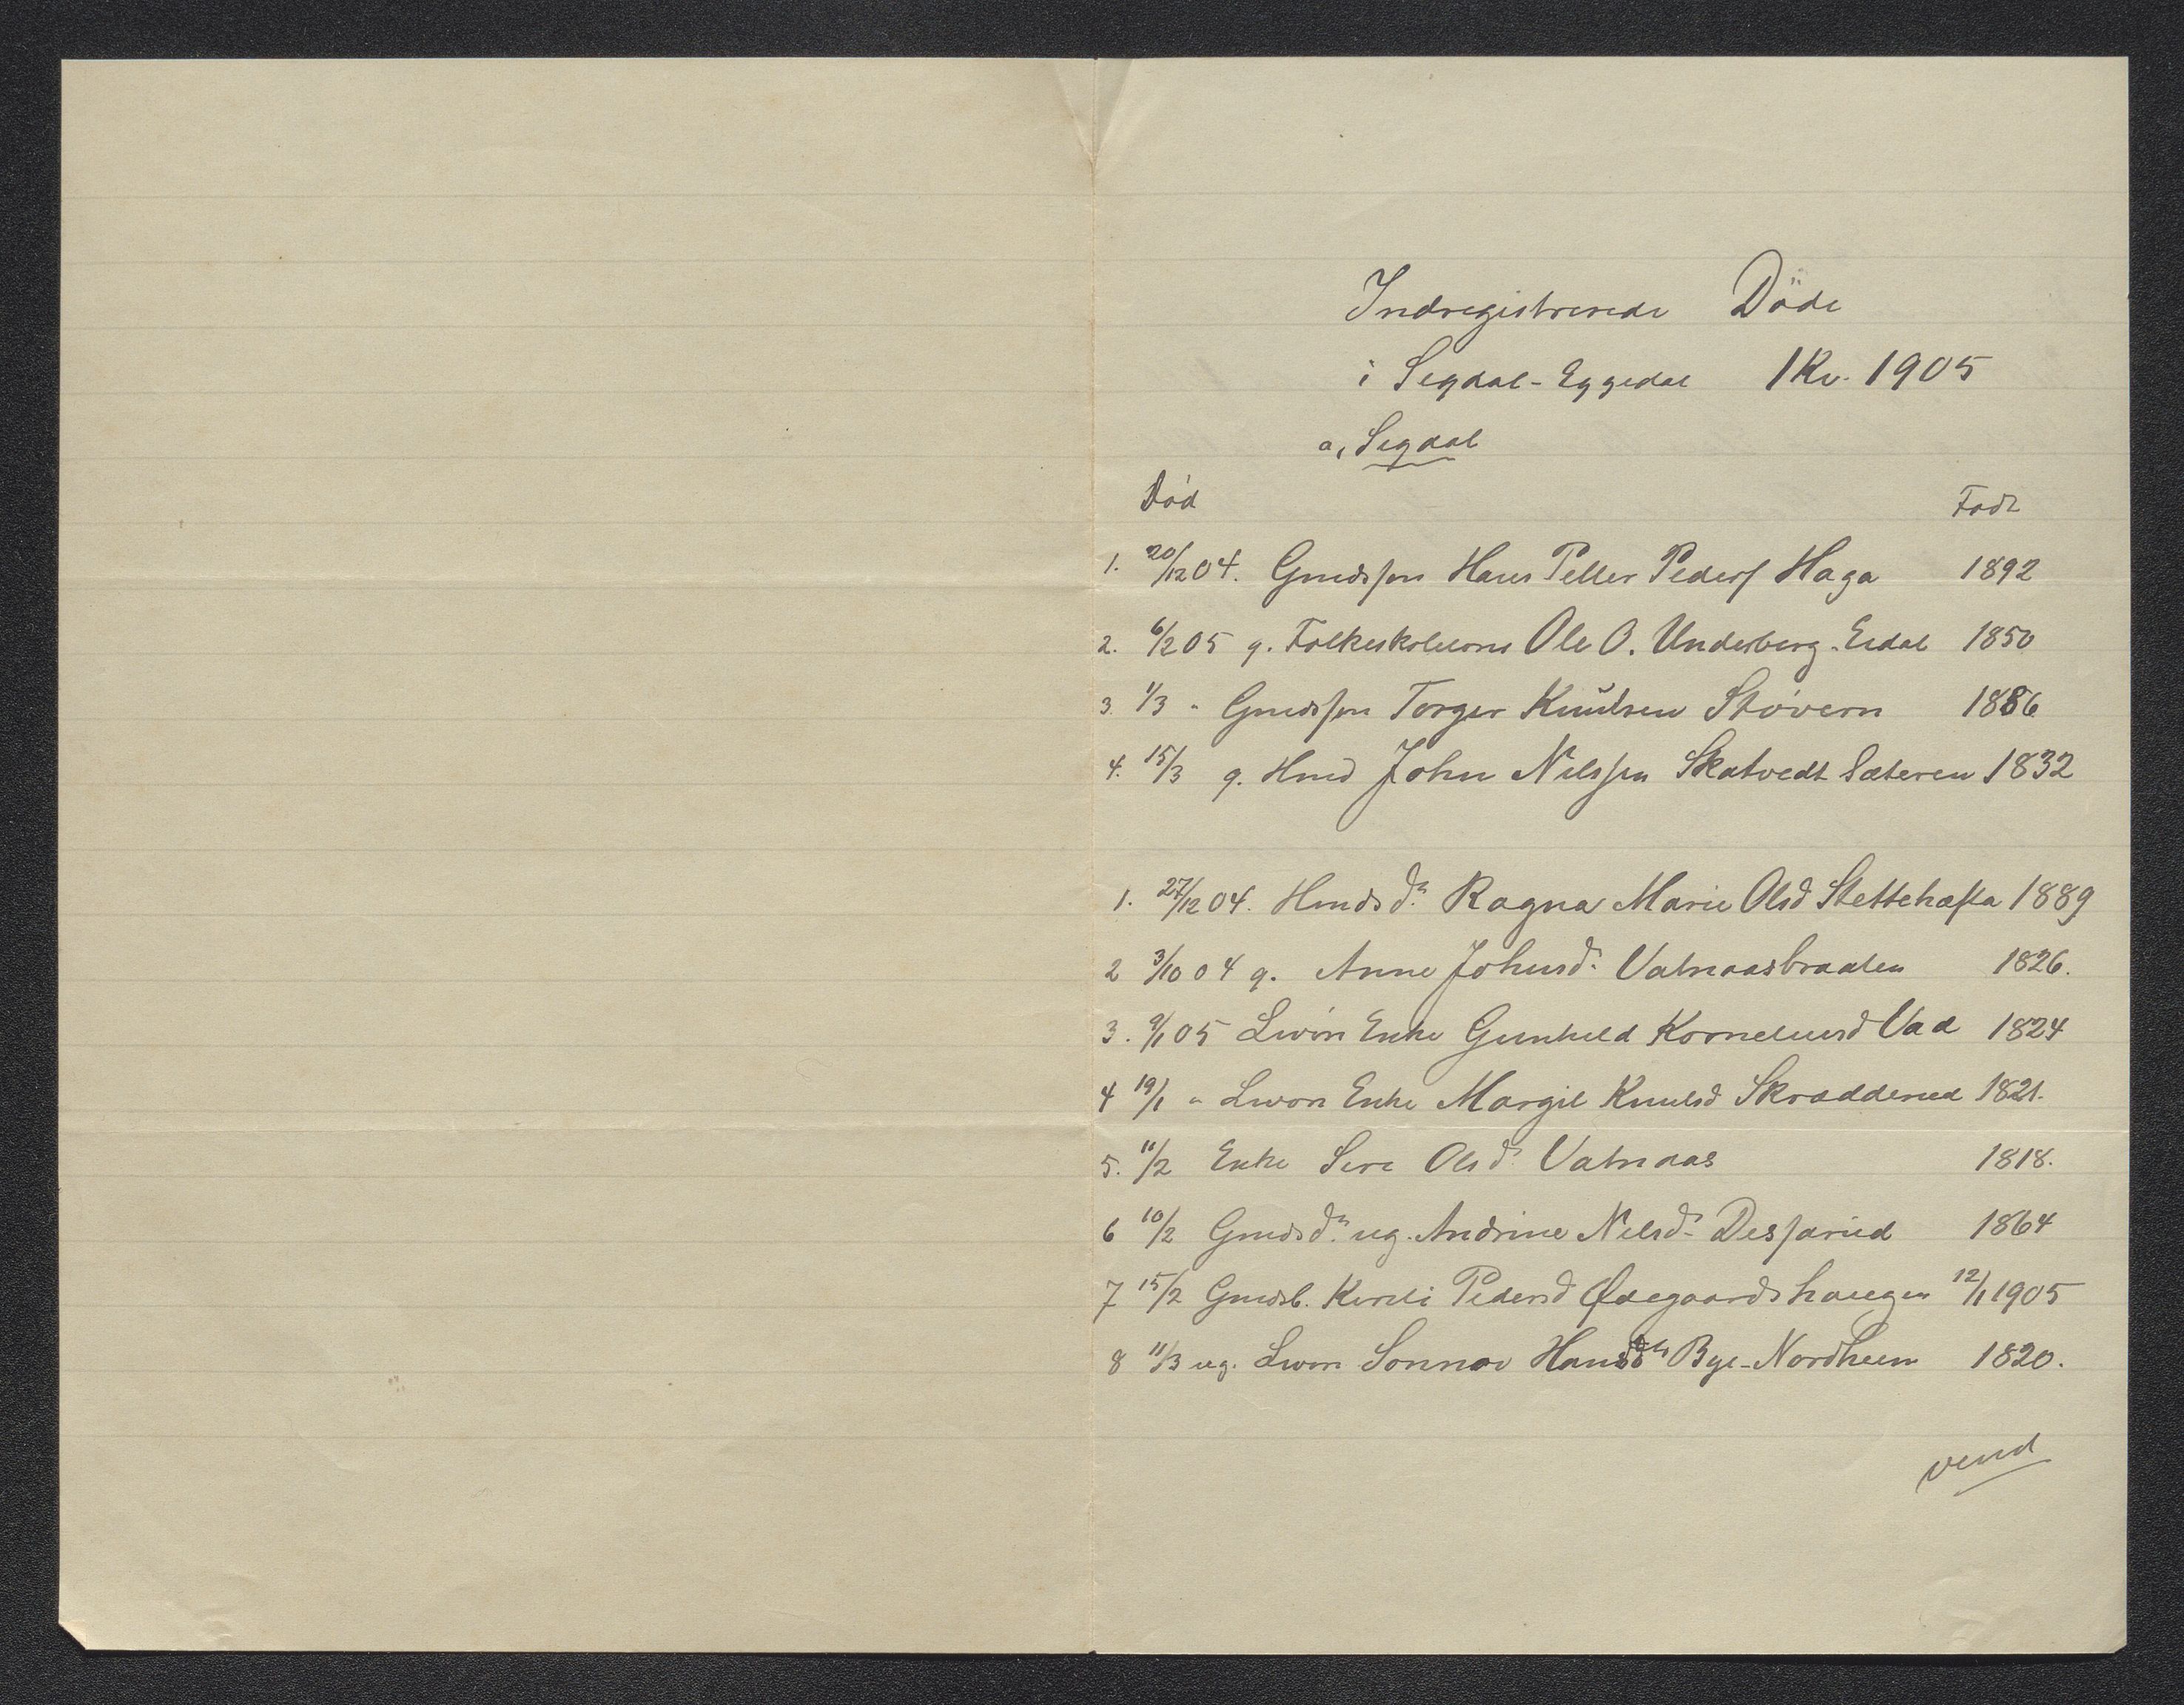 Indregistrerede Döde
i Sigdal-Eggedal 1 Kv. 1905
a, Sigdal
Död Født
1. 20/12 04. Gmdssøn Hans Petter Peders Haga 1892
2. 6/2 05 g. Folkeskolelærer Ole O. Underberg-Eidal 1850
3. 1/3 " Gmdssøn Torger Knudsen Støvern 1886
4. 15/3 g. Hmd John Nilssen Skatvedt Sæteren 1832
1. 27/12 04. Hmdsdr. Ragna Marie Olsd Slettehafta 1889
2 3/10 04 g. Anne Johnsd. Vatnaasbraaten 1826.
3. 9/1 05 Lwön Enke Gunhild Korneliusd Vad 1824
4 19/1 " Lwön Enke Margit Knutsd Skredderud 1821.
5. 11/2 Enke Siri Olsd. Vatnaas 1818.
6 10/2 Gmdsdr. ug. Andrine Nilsd. Desserud 1864
7 15/2 Gmdsb. Kirsti Pedersd Ødegaardshaugen 12/1 1905
8 11/3 ug. Lwön Sønnov Hansdtr Bye-Nordheim 1820.
vend